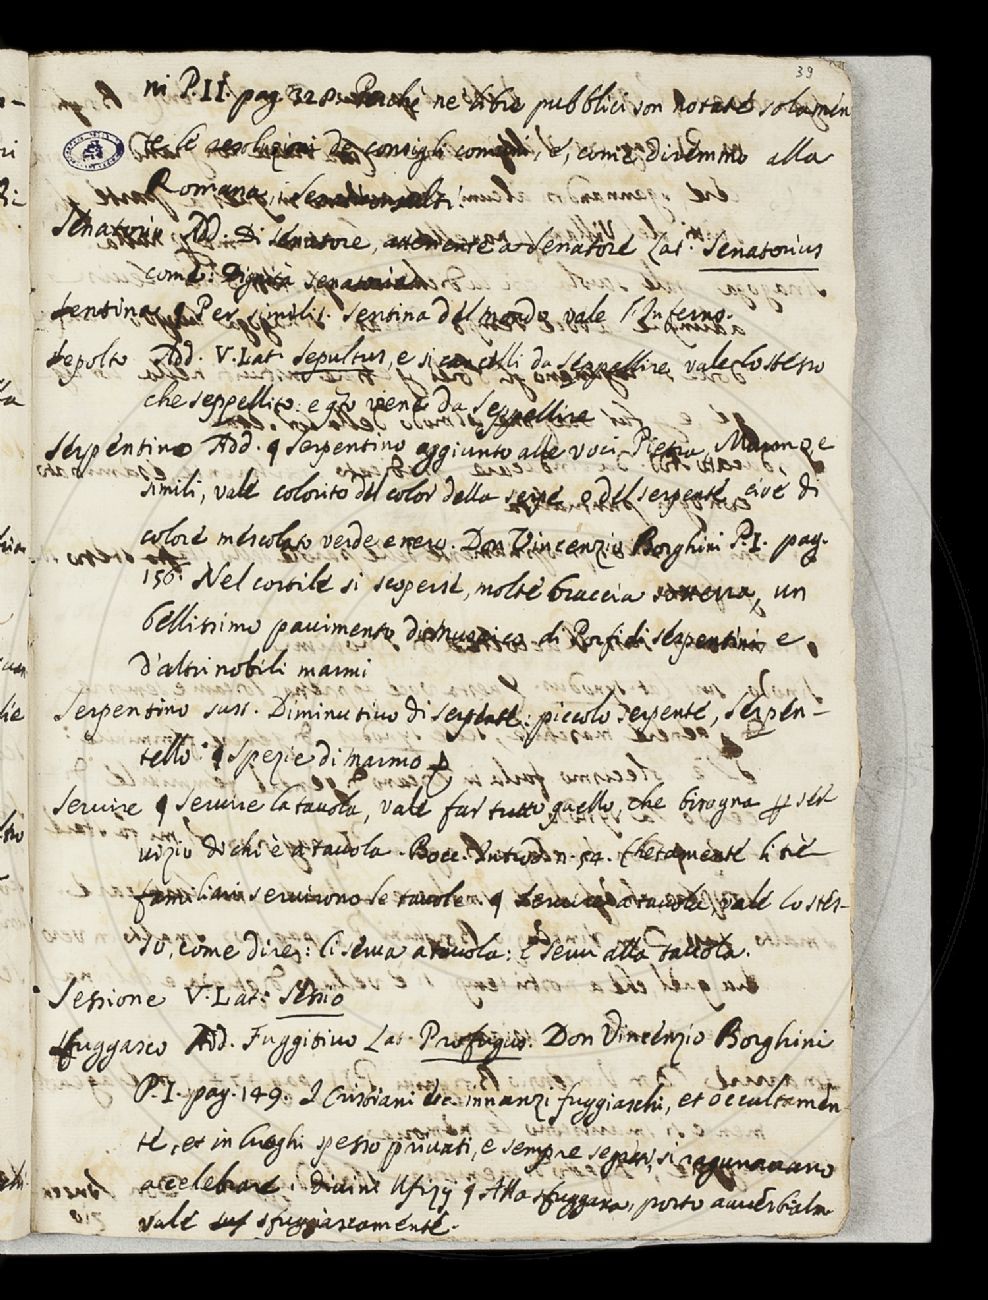 39
ni P. II. pag. 328. Perchè ne' libri pubblici son notate solamen
te le resoluzioni de' consigli comuni, e, come diremmo alla
Romana, i Senatusconsulti.
Senatorio Add. Di Senatore, attenente a Senatore Lat. Senatorius
come: Dignità senatoria
Sentina ¶ Per simil. sentina del mondo vale l'Inferno.
Sepolto Add. V. Lat. Sepultus, e si cancelli da Seppellire, vale lo stesso
che seppellito: e qto viene da Seppellire
Serpentino Add. ¶ Serpentino aggiunto alle voci Pietra, Marmo, e
simili, vale colorito del color della serpe, o del serpente, cioè di
colore mescolato verde e nero. Don Vincenzio Borghini P. I. pag.
156. Nel cortile si scoperse, molte braccia sotterra, un
bellissimo pavimento di musaico di Porfidi serpentini e
d'altri nobili marmi
Serpentino sust. Diminutivo di serpente: piccolo serpente, serpen-
tello ¶ spezie di marmo
Servire ¶ Servire la tavola, vale far tutto quello, che bisogna p ser
vizio di chi è a tavola. Bocc. Introd. n. 54. Chetamente li tre
famigliari servirono le tavole. ¶ Servire a tavola, vale lo stes-
so, come dire: li serva a tavola: e servi alla tavola.
Sessione V. Lat. Sessio
Sfuggiasco Add. Fuggitivo Lat. Profugus. Don Vincenzio Borghini
P. I. pag. 149. I Cristiani &c. innanzi fuggiaschi, et occultamen-
te, et in luoghi spesso privati, e sempre segreti, si ragunavano
a celebrare i divini Ufizj ¶ Alla sfuggiasca, posto avverbialm.
vale sfuggiascamente.